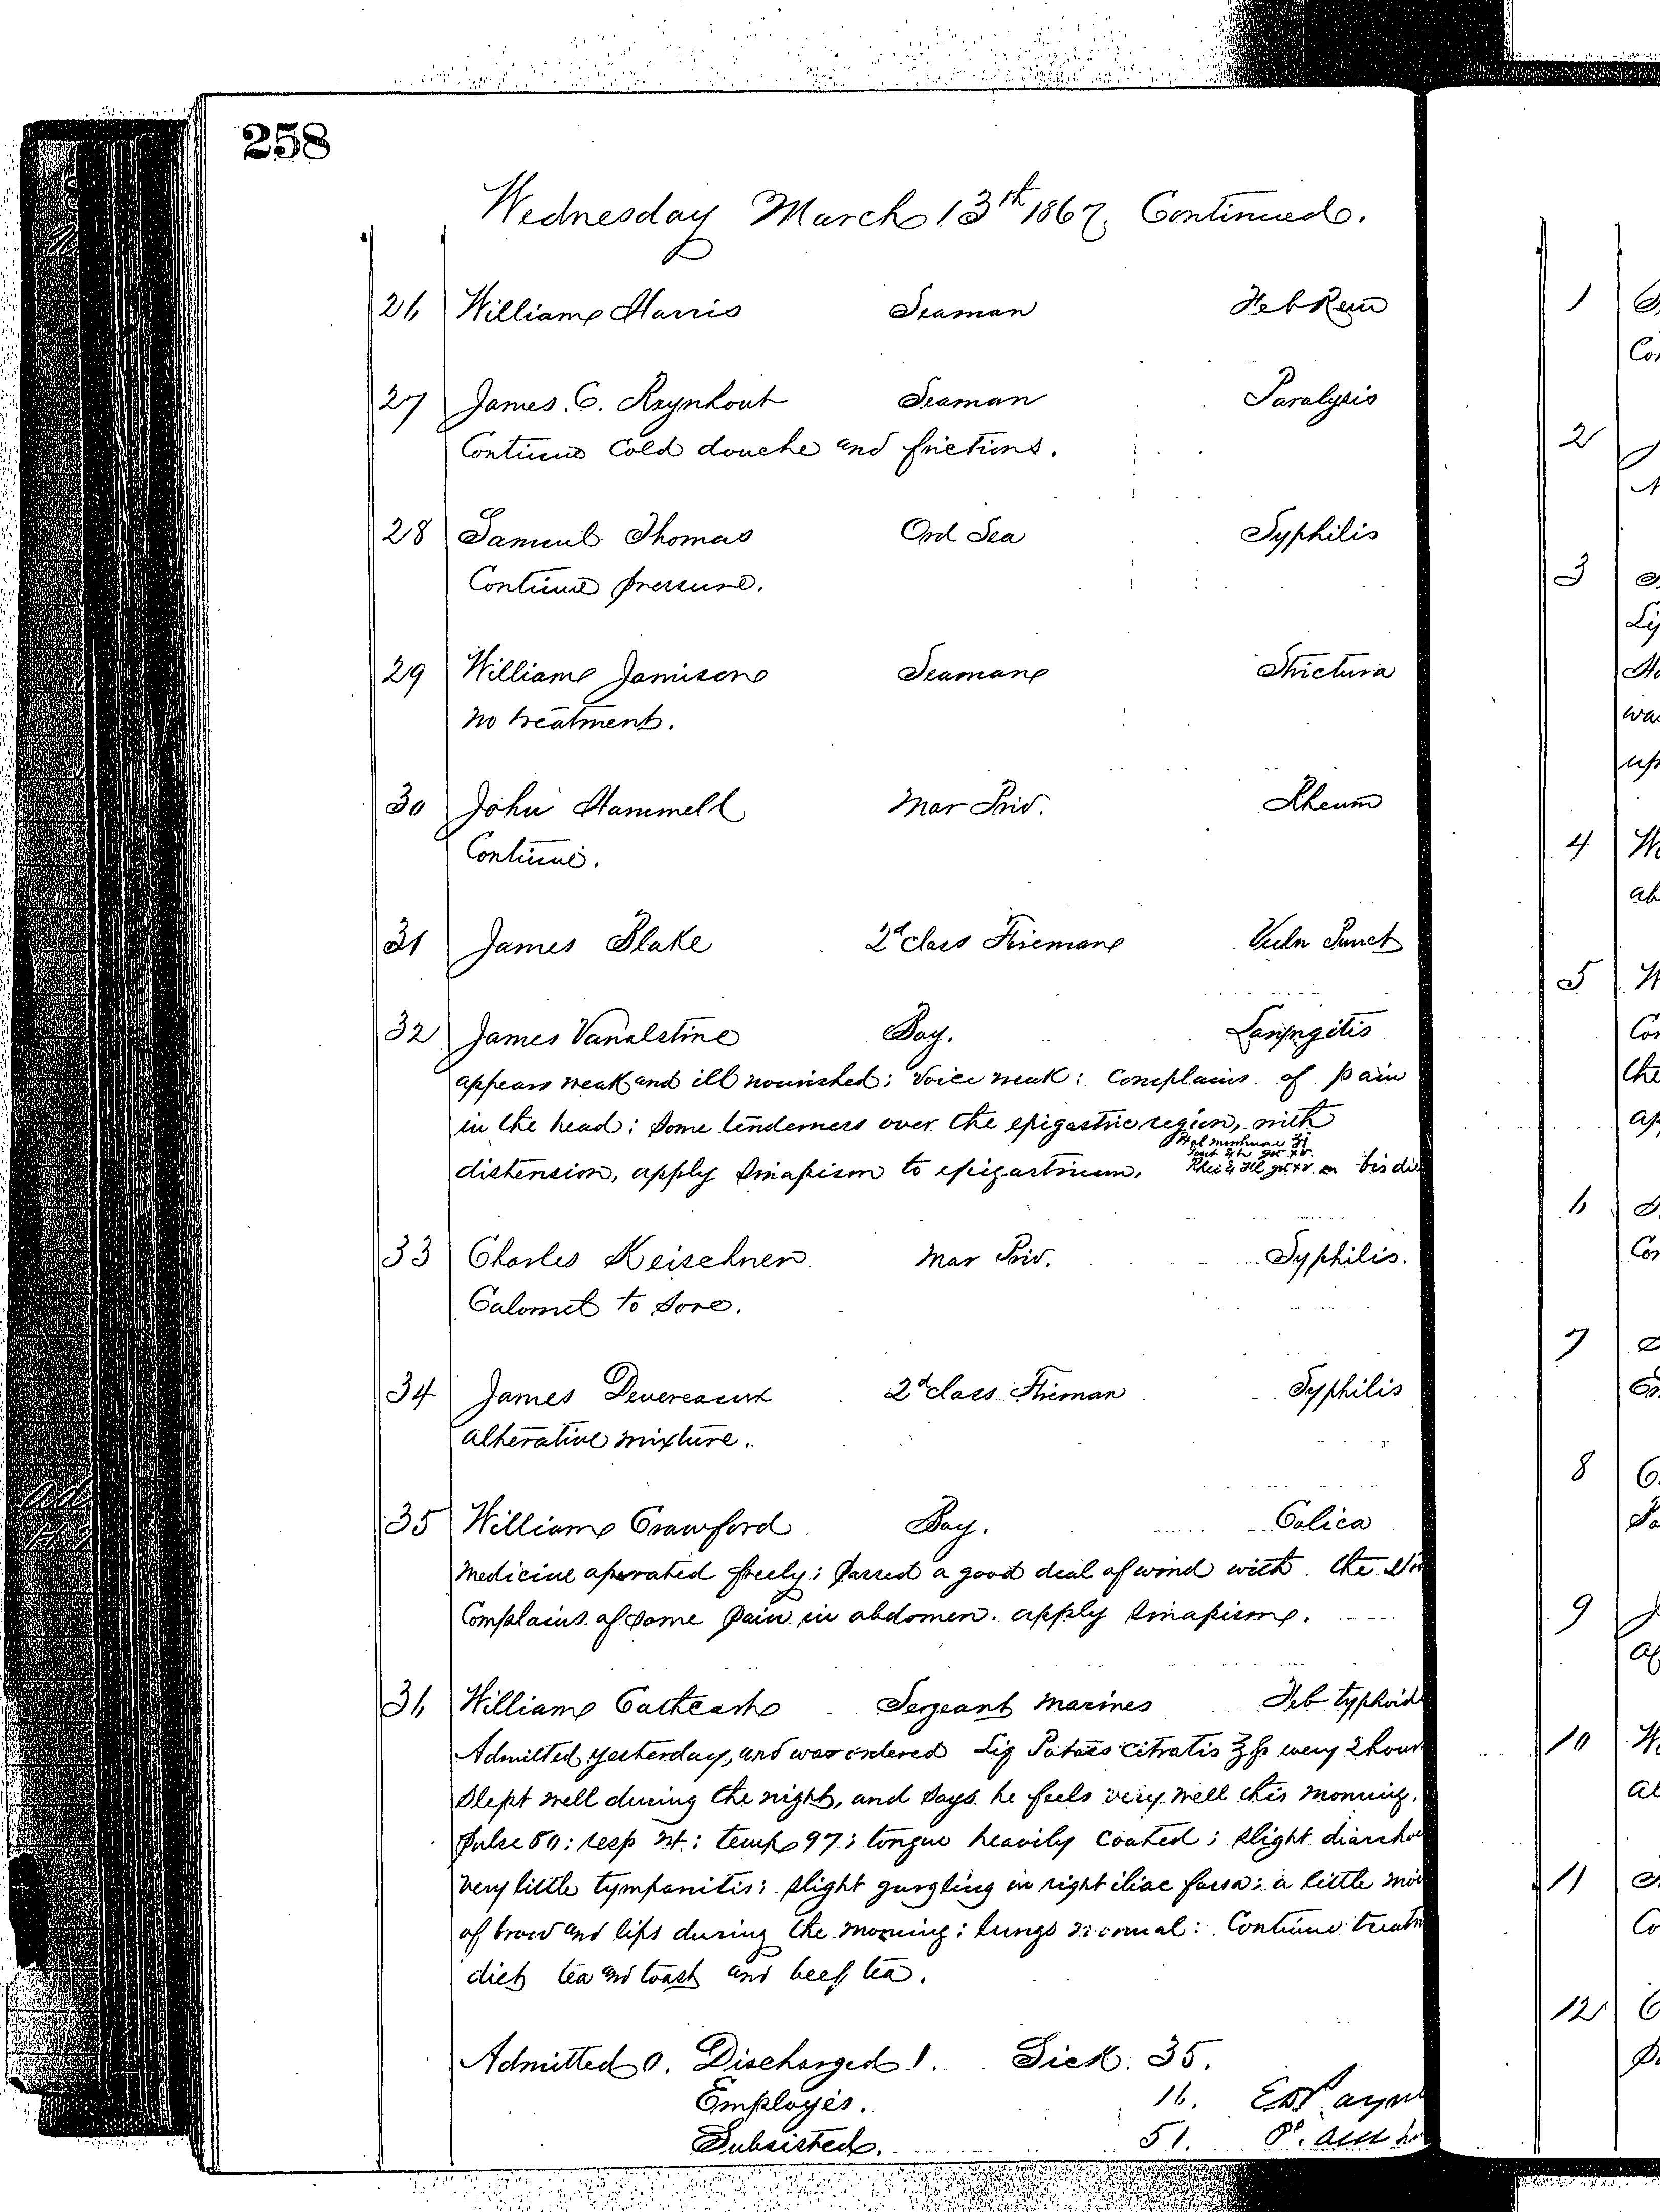 258
Wednesday March 13th 1867. Continued.
26 William Harris Seaman Feb Rem
27 James. C. Rhynhout Seaman Paralysis
Continue Cold douche and frictions.
28 Samuel Thomas Ord Sea Syphilis
Continue pressure.
29 William Jamison Seaman Strictura
No treatment.
30 John Hammell Mar Priv. Rheum
Continue.
31 James Blake 2d class Fireman Vuln Punct
32 James Vanalstine Boy. Laryngitis
appears weak and ill nourished; voice weak: complains of pain
in the head: some tenderness over the epigastric region, with
distension, apply sinapism to epigastrium, bis die
33 Charles Keischner Mar Priv. Syphilis.
Calomel to sore.
34 James Devereaux 2d class Fireman Syphilis
alterative mixture.
35 William Crawford Boy. Colica
medicine operated freely: passed a good deal of wind with the
Complains of some pain in abdomen. apply sinapism.
36 William Cathcart Sergeant Marines Feb typhoid
Admitted yesterday, and was ordered Liq Potass Citratis ℥ss every 2 hour
Slept well during the night, and says he feels very well this morning.
Pulse resp temp 97: tongue heavily coated: slight diarrhoe
very little tympanitis: slight gurgling in right iliac fossa: a little moi
of brow and lips during the morning: lungs normal: Continue treatm
diet tea and toast and beef tea.
Admitted 0. Discharged 1. Sick 35.
Employés. 16.
Subsisted. 51.
1
Co
2
3
Li
wa
up
4 W
ab
5 W
Co
the
ap
6
Co
7
8 C
9
10 W
al
11
Co
12 C